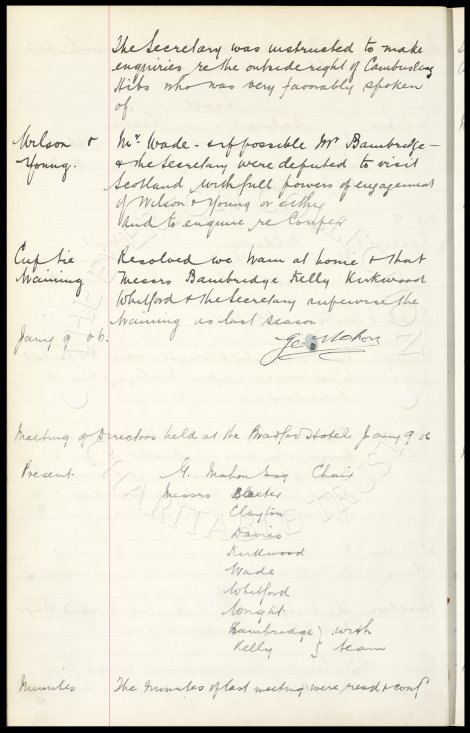 The Secretary was instructed to make
enquiries re the outside right of Cambuslang
Hibs who was very favorably spoken
of.
Wilson & Mr Wade - & if possible Mr Bainbridge -
Young. & the Secretary were deputed to visit
Scotland with full powers of engagement
of Wilson & Young or either
and to enquire re Couper
Cup tie Resolved we train at home & that
training Messrs Bainbridge Kelly Kirkwood
Whitford & the Secretary supervise the
training as last season.
Jany 9 06. Geo Mahon
Meeting of Directors held at the Bradford Hotel Jany 9 06
Present G. Mahon Esq Chair
Messrs Baxter
Clayton
Davies
Kirkwood
Wade
Whitford
Wright
Bainbridge } with
Kelly } team
Minutes The Minutes of last meeting were read & conf
THE EVERTON COLLECTION
CHARITABLE TRUST